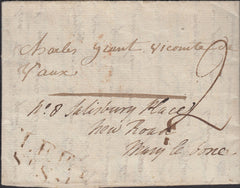 Charles Grant Vicomte de
Vaux
No. 8 Salisbury Place
New Road
Mary le bone
2